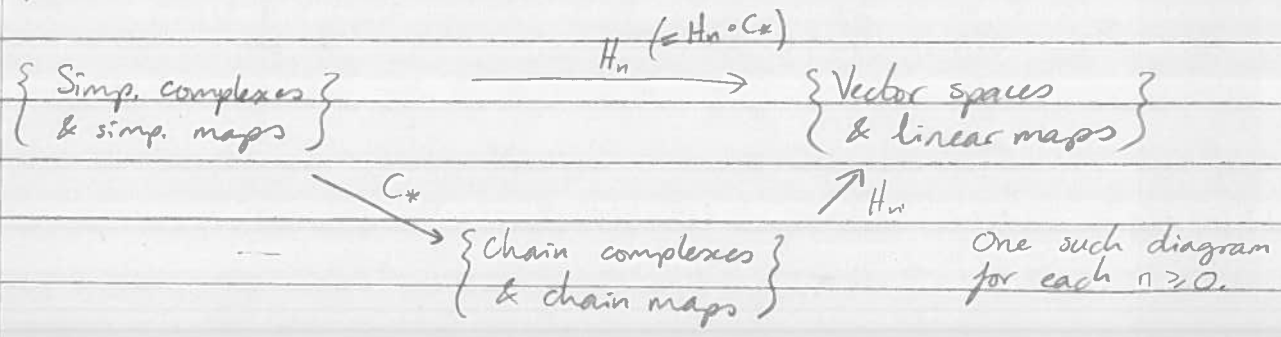 Hn (= Hn ∘ C*)
{ Simp. complexes & simp. maps }
{ Vector spaces & linear maps }
C*
Hn
{ Chain complexes & chain maps }
One such diagram
for each n ≥ 0.